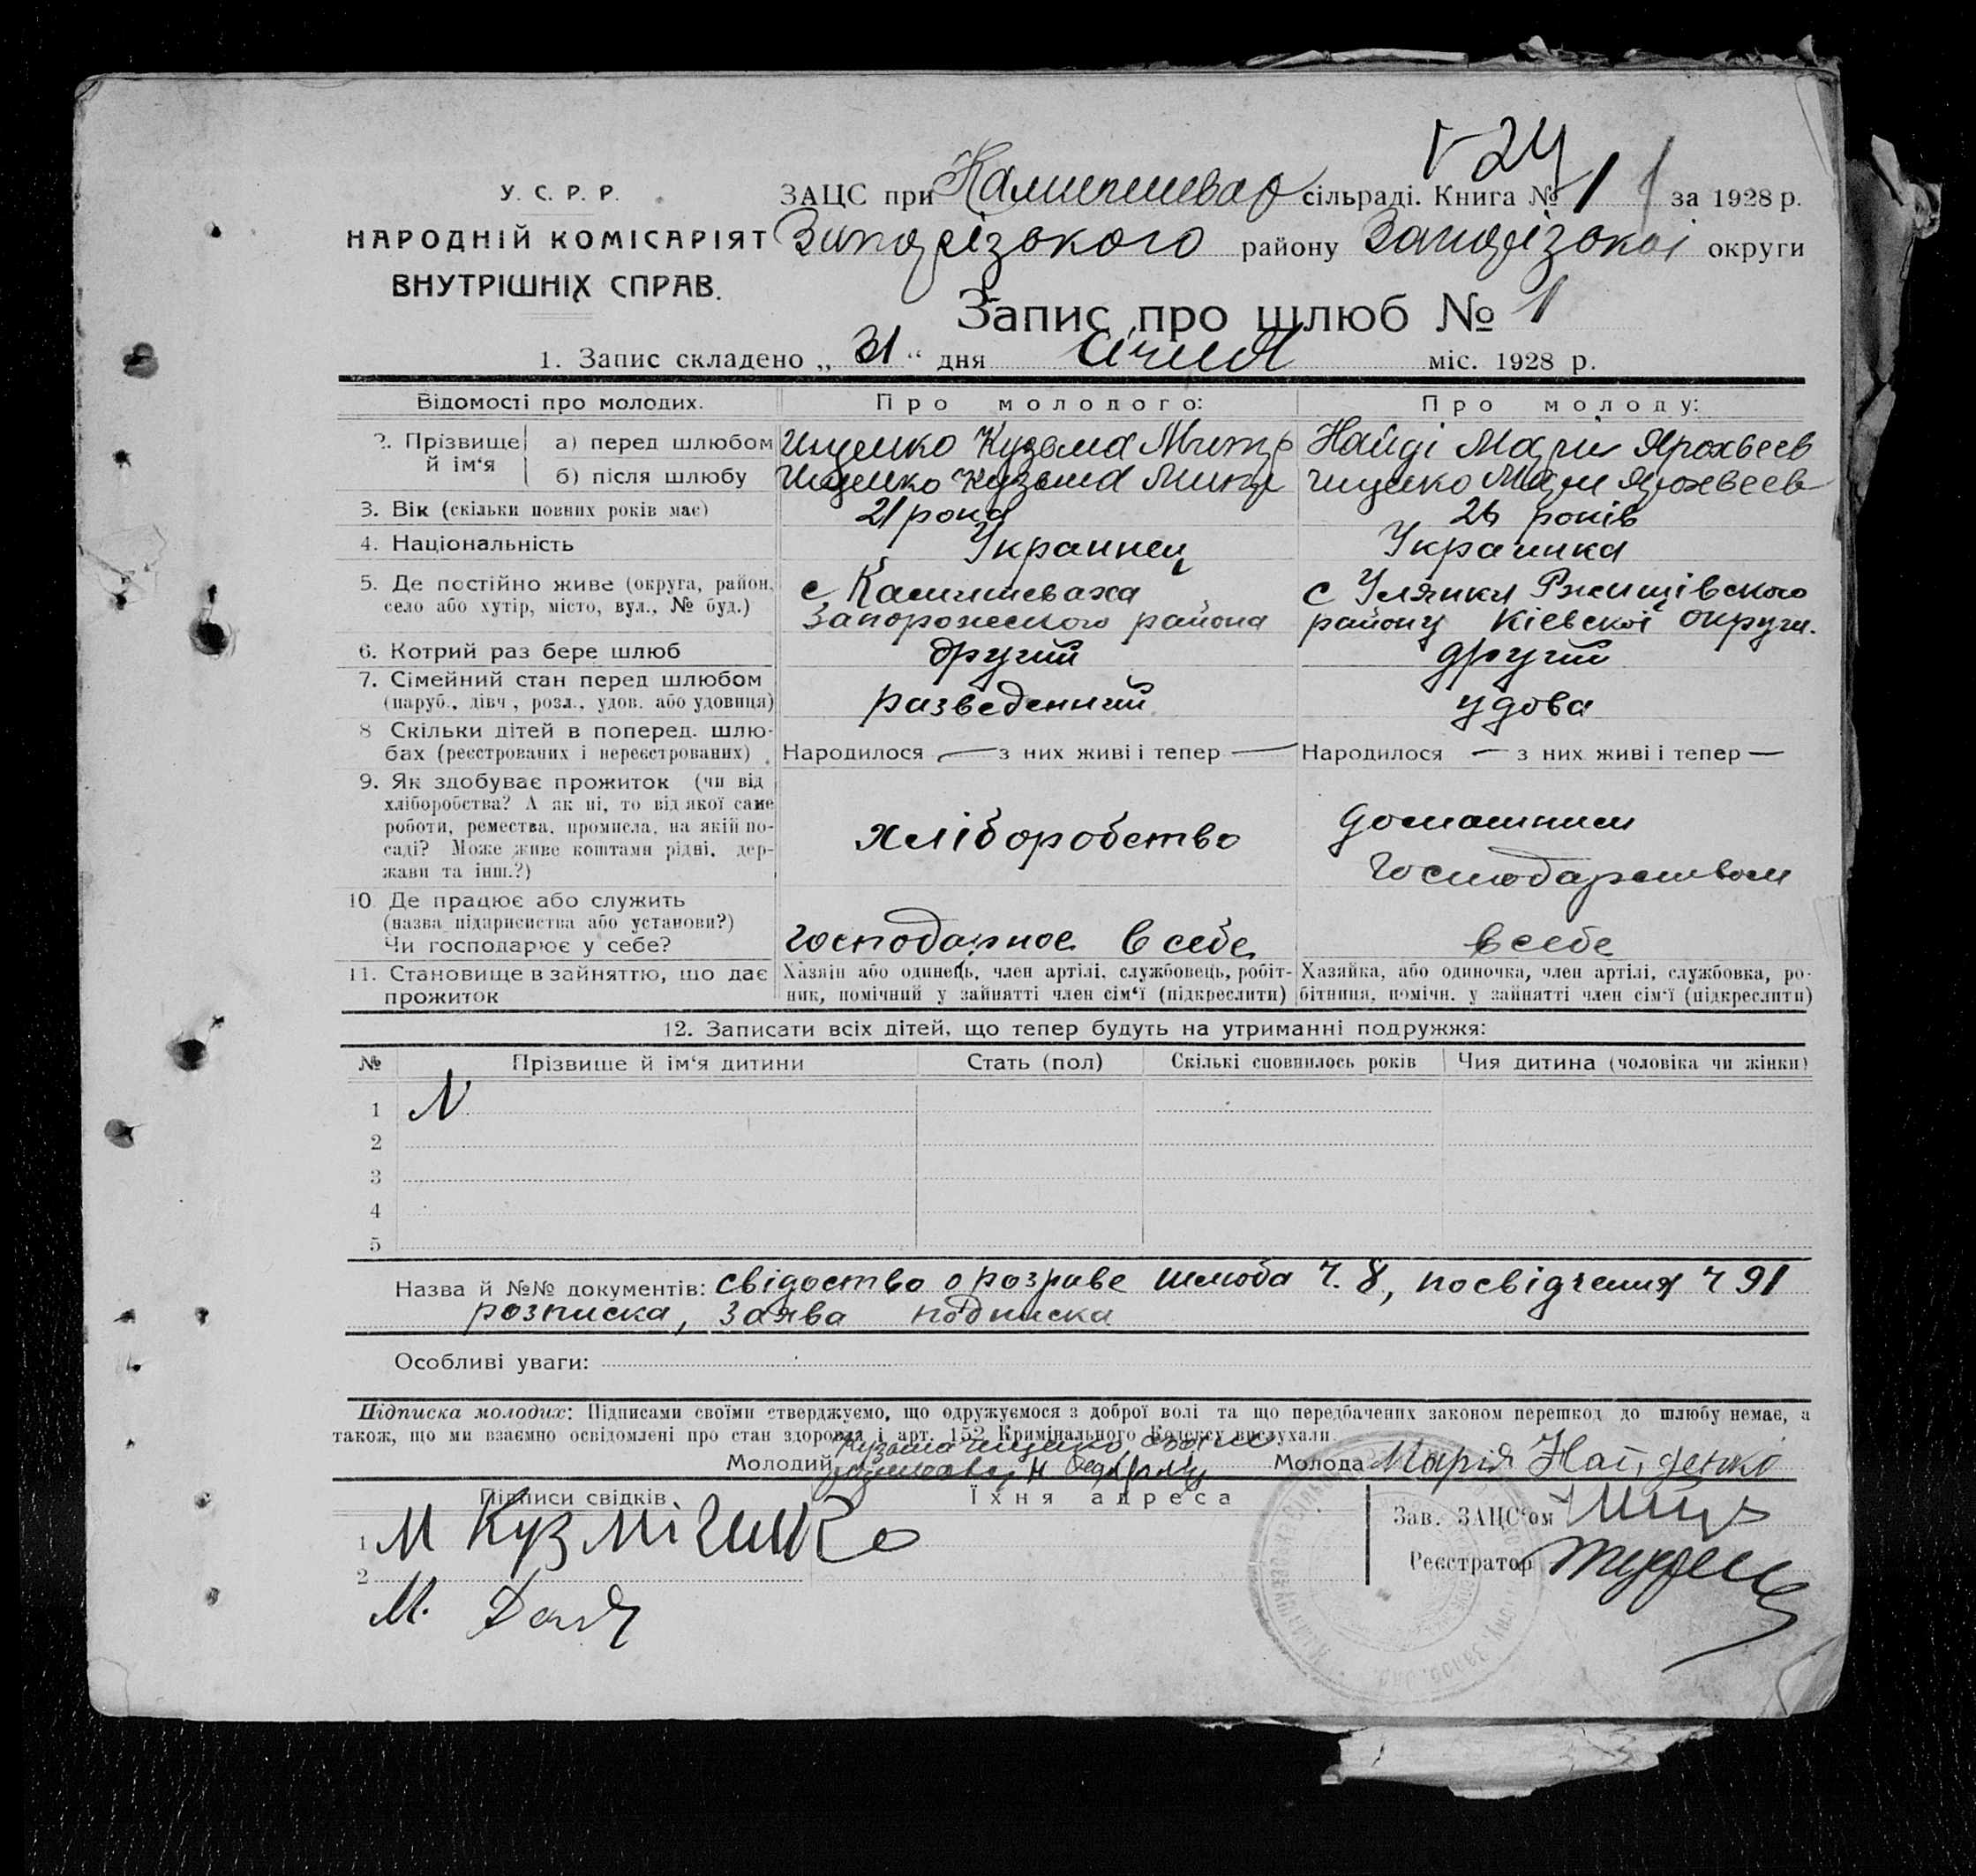 У. С. Р. Р.
НАРОДНІЙ КОМІСАРІЯТ
ВНУТРІШНІХ СПРАВ.
24
ЗАЦС при сільраді. Книга № 1 за 1928 р.
Запорізького району Запорізької округи
Запис про шлюб № 1
1. Запис складено „ 31 “ дня січня міс. 1928 р.
Відомості про молодих. Про молодого: Про молоду:
2. Прізвище й ім‘я а) перед шлюбом Ищенко Кузьма Митр Найді Марія
б) після шлюбу Ищенко Кузьма Ищенко
3. Вік (скільки повних років має) 21 рока 26 років
4. Національність Украинец Украинка
5. Де постійно живе (округа, район, с Камишеваха с Улянки Ржищівського
село або хутір, місто, вул., № буд.) Запорожского района району Кіевскої Округи.
6. Котрий раз бере шлюб другий другий
7. Сімейний стан перед шлюбом
(паруб., дівч., розл., удов. або удовиця) разведенный удова
8 Скільки дітей в поперед. шлю-
бах (реєстрованих і нереєстрованих) Народилося — з них живі і тепер — Народилося — з них живі і тепер —
9. Як здобуває прожиток (чи від
хліборобства? А як ні, то від якої саме
роботи, ремества, промисла, на якій по-
саді? Може живе коштами рідні, дер-
жави та інш.?)
хліборобство домашним
господарством
10. Де працює або служить
(назва підприємства або установи?)
Чи господарює у себе? в себе в себе
11. Становище в зайняттю, що дає
прожиток
Хазяїн або одинець, член артілі, службовець, робіт-
ник, помічний у зайнятті член сім‘ї (підкреслити)
Хазяйка, або одиночка, член артілі, службовка, ро-
бітниця, помічн. у зайнятті член сім‘ї (підкреслити)
12. Записати всіх дітей, що тепер будуть на утриманні подружжя:
№ Прізвище й ім‘я дитини Стать (пол) Скількі сповнилось років Чия дитина (чоловіка чи жінки)
1
2
3
4
5
Назва й №№ документів: свідоство о розриве шлюба ч. 8, посвідчения ч 91
розписка, заява подписка
Особливі уваги:
Підписка молодих: Підписами своїми стверджуємо, що одружуємося з доброї волі та що передбачених законом перешкод до шлюбу немає, а
також, що ми взаємно освідомлені про стан здоровля і арт. 152 Кримінального Кодексу вислухали.
Молодий Кузьма Ищенко Молода Марія Найденко
Підписи свідків Їхня адреса
1 М
2
М.
Зав. ЗАЦС‘ом
Реєстратор